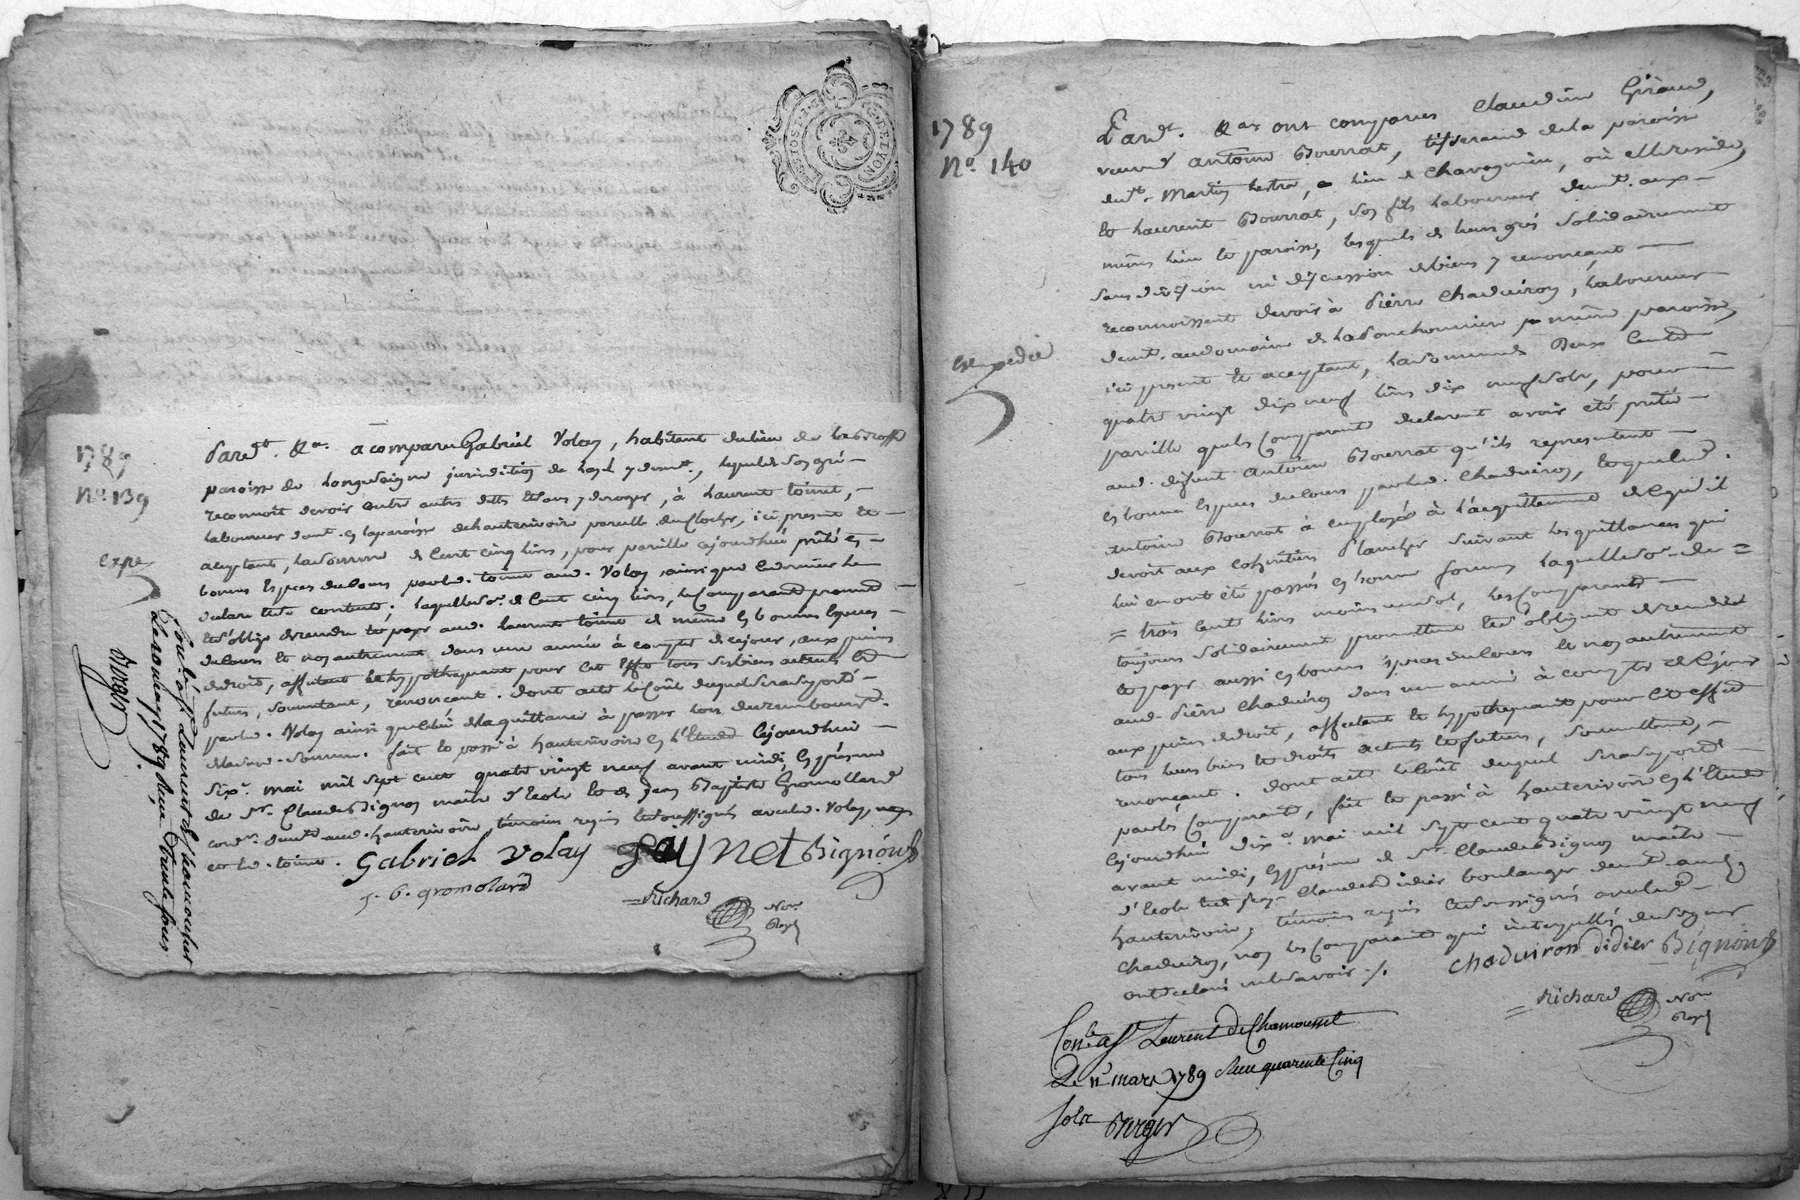 1789
No. 139
expe
Pard.t &a. a comparu Gabriel Volay, habitant du lieu de la Brosse
paroisse de Longesaigne juridiction de y demt., lequel de son gré
reconnoit devoir outre autres dettes et sans y deroger, à Laurent toinet,
laboureur demt. en la paroisse d'hauterivoire parcelle du Clocher, ici present et
aceptant, la somme de Cent cinq livres, pour pareille cejourdhui prêté en
bonnes Especes de Cours par led. toinet aud. Volay, ainsi que ce dernier le
declare content; laquelle so.e de Cent cinq livres, le Comparant promet
et s'oblige de rendre et payer aud. laurent toinet de même en bonnes Especes
de Cours et non autrement dans une année à compter de ce jour, aux peines
de droit, affectant et hypothequant pour Cet Effet tous ses biens actuels et
futurs, soumettant, renoncant. dont acte le Coût duquel sera suporté
par led. Volay ainsi que Celui de la quittance à passer lors du remboursemt.
de lad. somme. fait et passé à hauterivoire En l'Etude Cejourdhui
six.e mai mil sept cent quatre vingt neuf avant midi, En présence
de Sr. Claude Bignon maître d'Ecole et de Jean Baptiste Gromollard
cord.r demt. aud. hauterivoire, témoins requis et soussignés avec led. Volay, non
led. toinet.
Gabriel Volay
Bignon
J. B. gromolard
Richard
Nore
Royal
Conlé à St Laurent de Chamousset
Le 10 mars 1789 Reçu trente sous
Berger
G. DE LYON
1789
No. 140
expedié
Pard.t &a. ont comparu Claudine Giraud,
veuve d'Antoine Bourrat, tisserand de la paroisse
de St. Martin lestra, lieu de Chavagnieu, où elle reside,
et Laurent Bourrat, son fils laboureur demt. aux
mêmes lieu et paroisse, lesquels de leurs grés solidairement
sans division ni discussion de biens y renonçant
reconnoissent devoir à Pierre Chaduiron, laboureur
demt. au domaine de même paroisse,
ici present et aceptant, la somme de Deux Cents
quatre vingt dix neuf livres dix neuf sols, pour
pareille que les Comparants declarent avoir été prêté
aud. defunt Antoine Bourrat qu'ils representent
en bonnes Especes de Cours par led. Chaduiron, lequel d.
Antoine Bourrat à employée à l'acquittement de ce qu'il
devoit aux cohéritiers Plancher suivant les quittances qui
lui en ont été passées en bonne forme laquelle so.e de
= trois Cent livres moins un sol, les Comparants
toujours solidairement promettent et s'obligent de rendre
et payer aussi en bonnes Especes de Cours et non autrement
aud. Pierre Chaduiron dans une année à compter de ce jour
aux peines de droit, affectant et hypothequant pour Cet effet
tous leurs biens et droits actuels et futurs, soumettant,
renonçant. dont acte le Coût duquel sera suporté
par les Comparants, fait et passé à hauterivoire En l'Etude
Cejourdhui dix.e mai mil sept cent quatre vingt neuf
avant midi, En présence de Sr. Claude Bignon maître
d'Ecole et de Claude Didier boulanger demt. aud.
hauterivoire, témoins requis et soussignés avec led.
Chaduiron, non les Comparants qui interpellés de signer
ont declaré ne le savoir ./.
chaduiron didier Bignon
Richard
Nore
Royal
Conlé à St Laurent de Chamousset
Le 11 mars 1789 Reçu quarente Cinq
sols
Berger